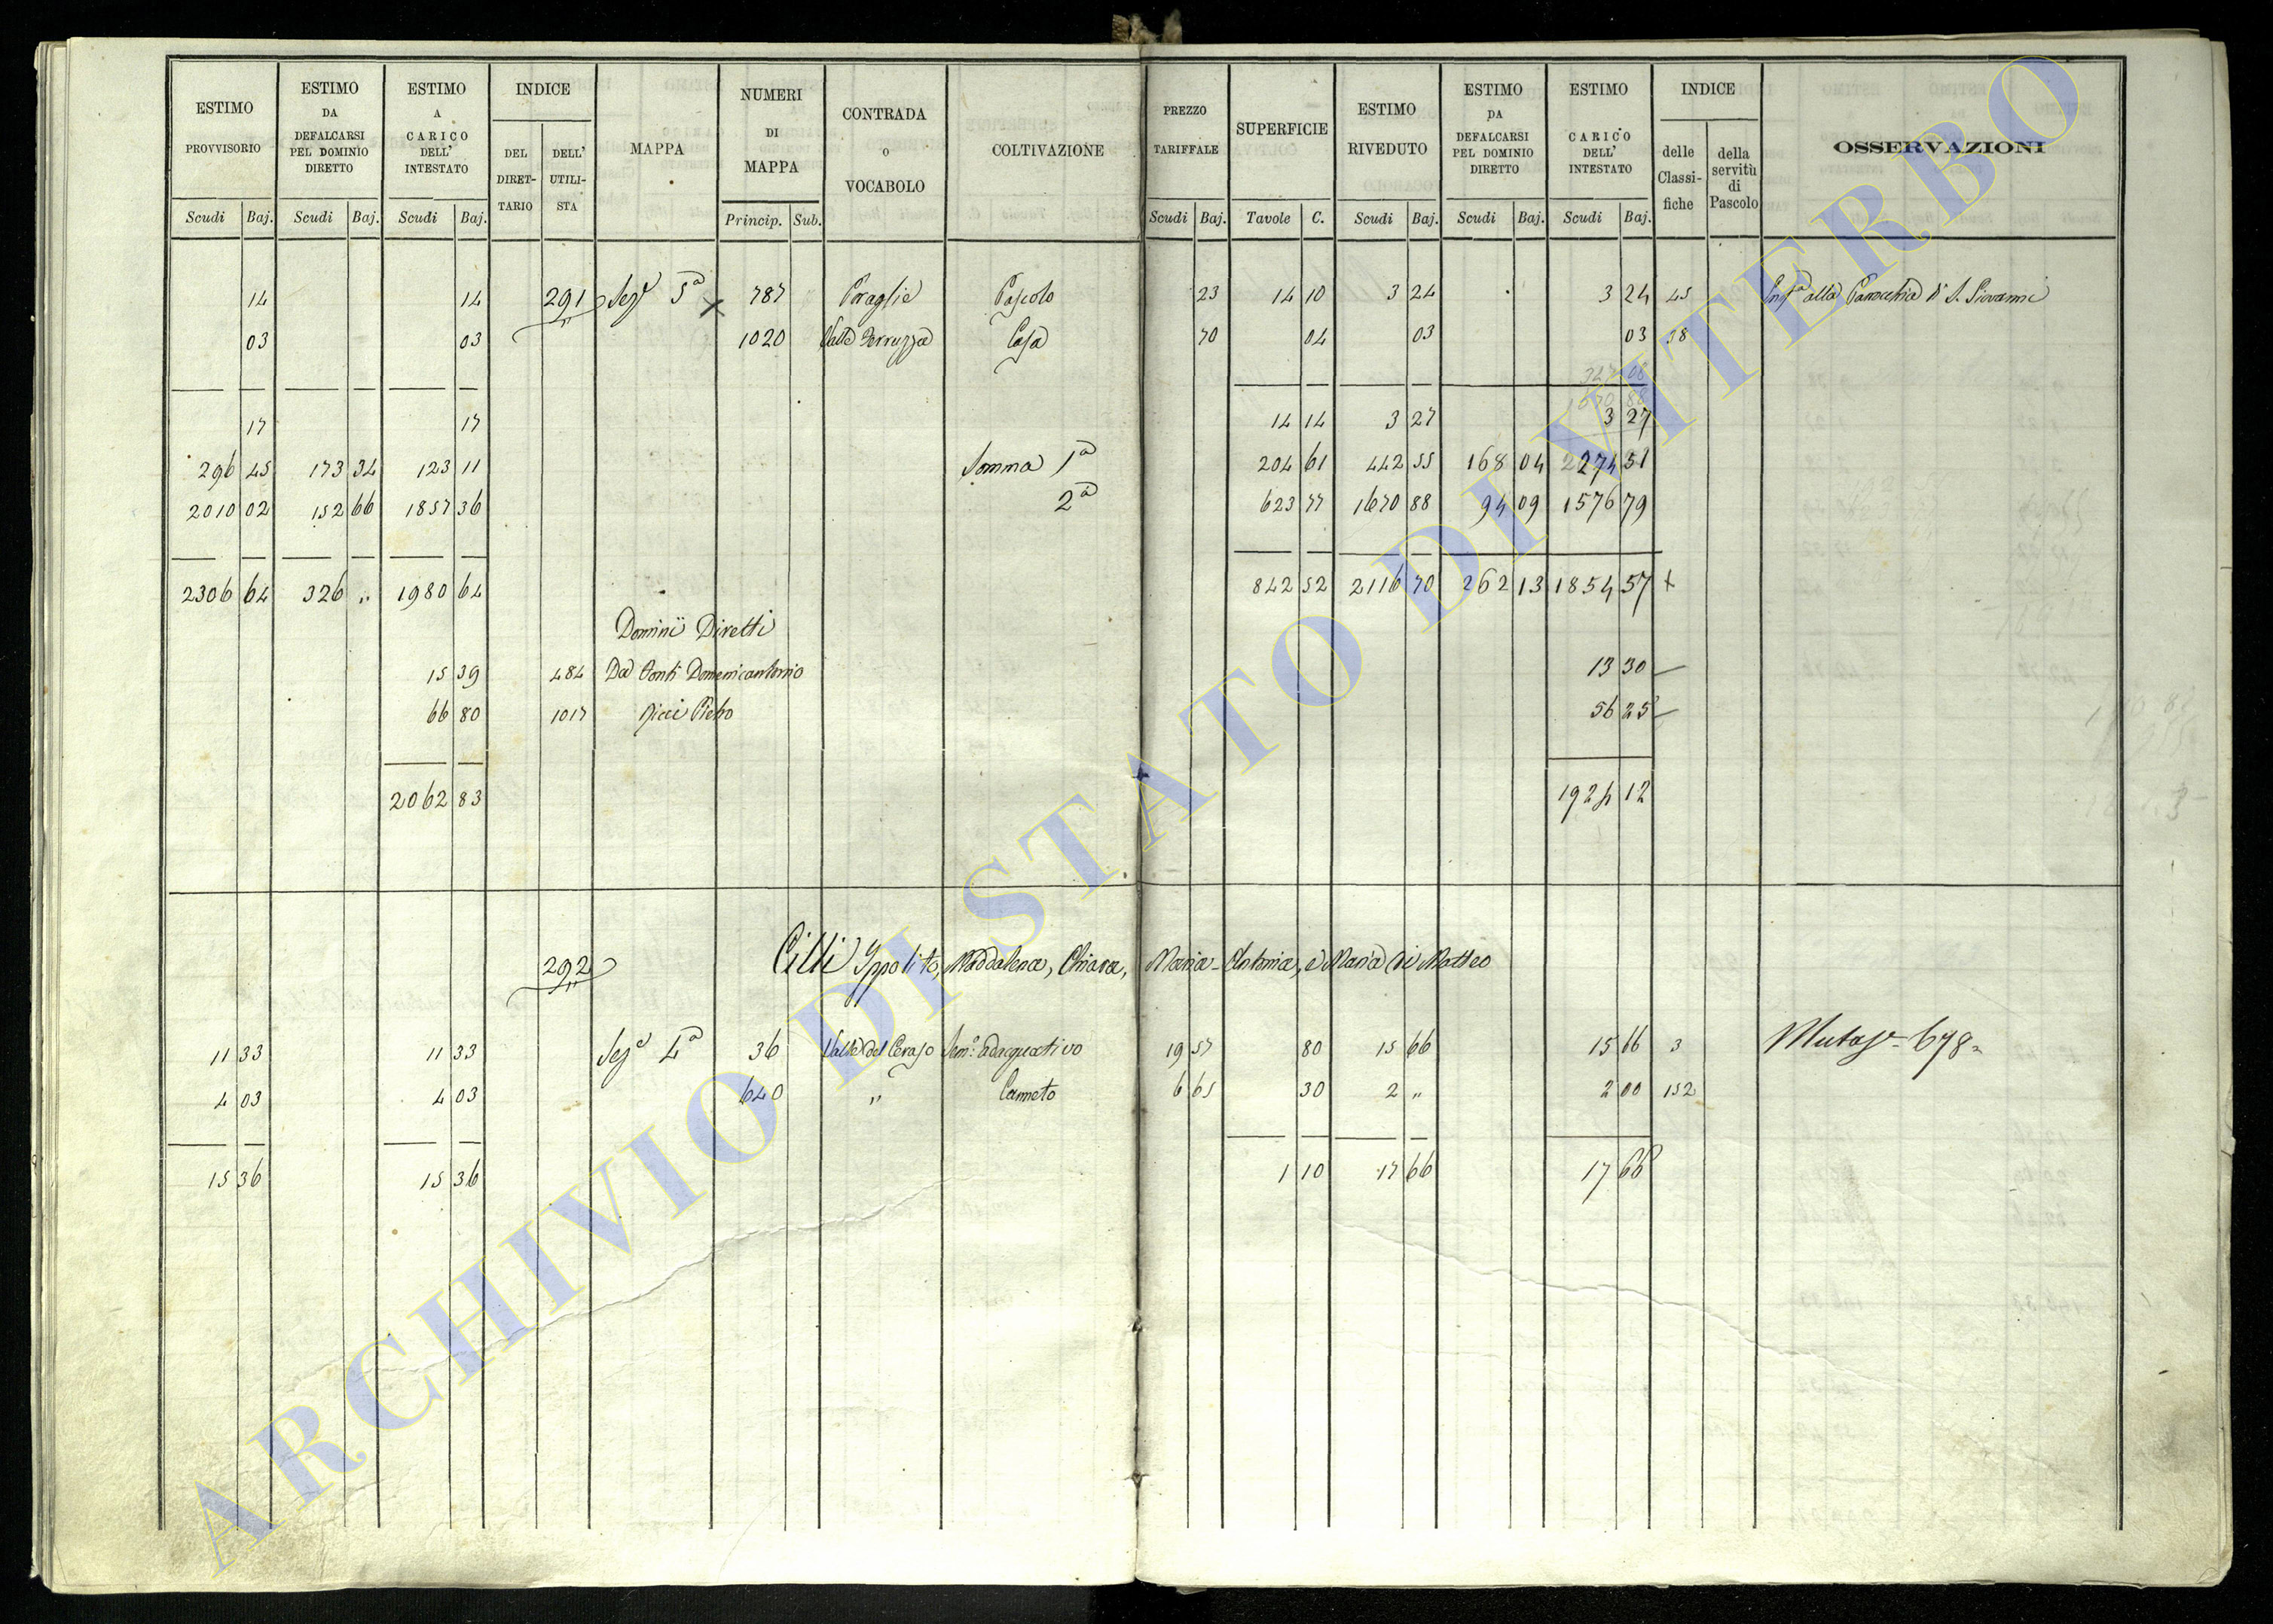 ESTIMO PROVVISORIO | ESTIMO DA DEFALCARSI PEL DOMINIO DIRETTO | ESTIMO A CARICO DELL' INTESTATO | INDICE DEL DIRET-TARIO | DELL' UTILI-STA | MAPPA | NUMERI DI MAPPA | CONTRADA O VOCABOLO | COLTIVAZIONE | PREZZO TARIFFALE | SUPERFICIE | ESTIMO RIVEDUTO | ESTIMO DA DEFALCARSI PEL DOMINIO DIRETTO | ESTIMO A CARICO DELL' INTESTATO | INDICE delle Classi-fiche | della servitù di Pascolo | OSSERVAZIONI
Scudi Baj. | Scudi Baj. | Scudi Baj. | Princip. Sub. | Scudi Baj. | Tavole C. | Scudi Baj. | Scudi Baj. | Scudi Baj.
14 | 14 | 291 | Sez.e 5a | 787 | Pascolo | 23 | 14 10 | 3 24 | 3 24 | 45 | alla Parocchia di S. Giovanni
03 | 03 | 1020 | Valle | Casa | 70 | 04 | 03 | 03 | 38
17 | 17 | 14 14 | 3 27 | 3 27
296 45 | 173 34 | 123 11 | Somma 1a | 204 61 | 442 55 | 168 04 | 274 51
2010 02 | 152 66 | 1857 36 | 2a | 623 77 | 1670 88 | 94 09 | 1576 79
2306 64 | 326 " | 1980 64 | 842 52 | 2116 70 | 262 13 | 1854 57
Dominii Diretti
15 39 | 484 | Da Conti Domenicantonio | 13 30
66 80 | 1017 | Ricci Pietro | 56 25
2062 83 | 1924 12
292 | Cilli Ippolito, Maddalena, Chiara, Maria-Antonia, e Maria di Matteo
11 33 | 11 33 | Sez.e 4a | 36 | Valle del Ceraso | Sem.o adacquativo | 19 57 | 80 | 15 66 | 15 66 | 3 | 678
4 03 | 4 03 | 640 | " | Canneto | 6 65 | 30 | 2 " | 2 00 | 152
15 36 | 15 36 | 1 10 | 17 66 | 17 66
ARCHIVIO DI STATO DI VITERBO